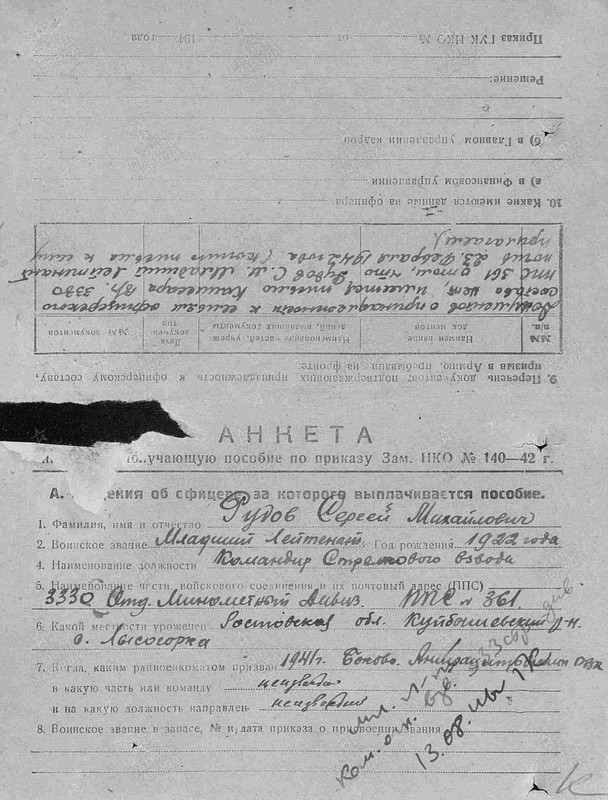 АНКЕТА
лучающую пособие по приказу Зам. НКО № 140—42 г.
А. ения об офицере, за которого выплачивается пособие.
1. Фамилия, имя и отчество Рудов Сергей Михайлович
2. Воинское звание Младший Лейтенант Год рождения 1922 года
4. Наименование должности Командир Стрелкового взвода
5. Наименование части, войскового соединения и их почтовый адрес (ППС)
3330 Отд. Минометный Дивиз. ППС № 361.
6. Какой местности уроженец Ростовская обл. Куйбышевский р-н
с. Лысогорка
7. Когда, каким райвоенкоматом призван 1941г. Боково-Антрацитовским ОВК
в какую часть или команду неизвестно
и на какую должность направлен неизвестно
8. Воинское звание в запасе, № и дата приказа о присвоении звания
мл. л-т
ком. взв. 33 диви.
13.08.
9. Перечень документов, подтверждающих принадлежность к офицерскому составу,
призыв в Армию, пребывание на фронте:
№№ п/п. Наимен вание док ментов Наименование учреж- дений, частей, выдавших документы Дата докумен- тов №№ документов
Документов о принадлежности к семьи офицерского
состава нет, имеется письмо Комиссара В/ч. 3330
ППС 361 о том, что Рудов С. М. Младший Лейтенант
погиб 23 Февраля 1942 года (копию письма к сему
прилагаем).
10. Какие имеются данные на офицера
а) в Финансовом управлении
б) в Главном управлении кадров
Решение:
Приказ ГУК НКО № от 194 года